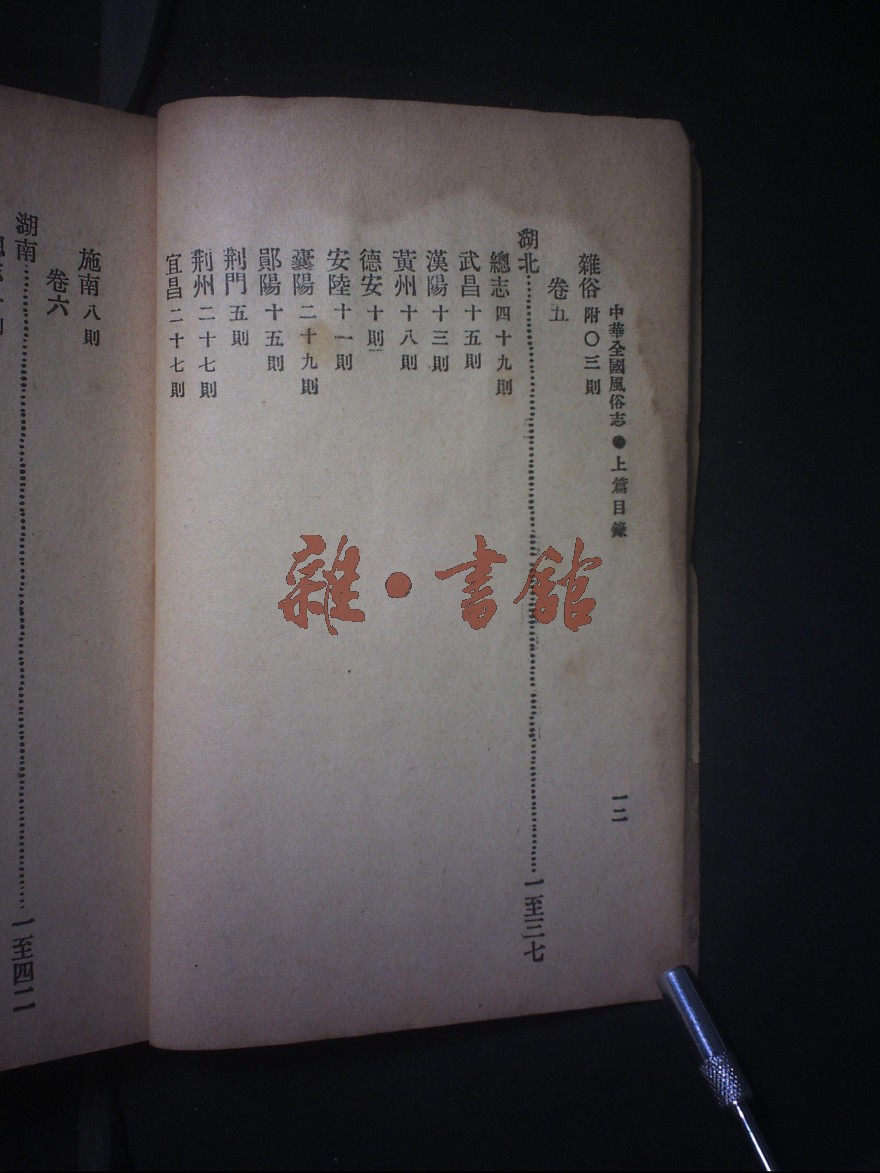 中華全國風俗志●上篇目錄 一二
雜俗附○三則
卷五
湖北 一至三七
總志四十九則
武昌十五則
漢陽十三則
黃州十八則
德安十則
安陸十一則
襄陽二十九則
鄖陽十五則
荆門五則
荆州二十七則
宜昌二十七則
施南八則
卷六
湖南 一至四二
雜·書館